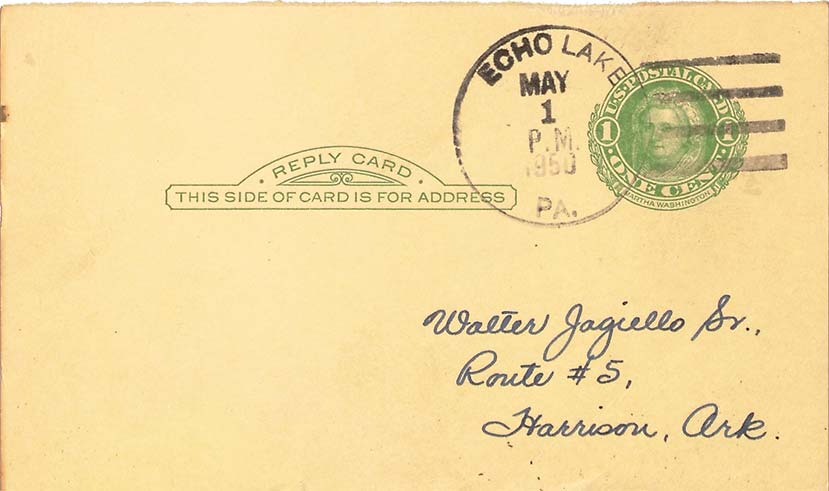 ECHO LAKE
MAY
1
P.M.
1950
PA.
U.S. POSTAL CARD
1 1
· ONE CENT ·
MARTHA WASHINGTON
· REPLY CARD ·
THIS SIDE OF CARD IS FOR ADDRESS
Walter Jagiello Sr.,
Route #5,
Harrison, Ark.